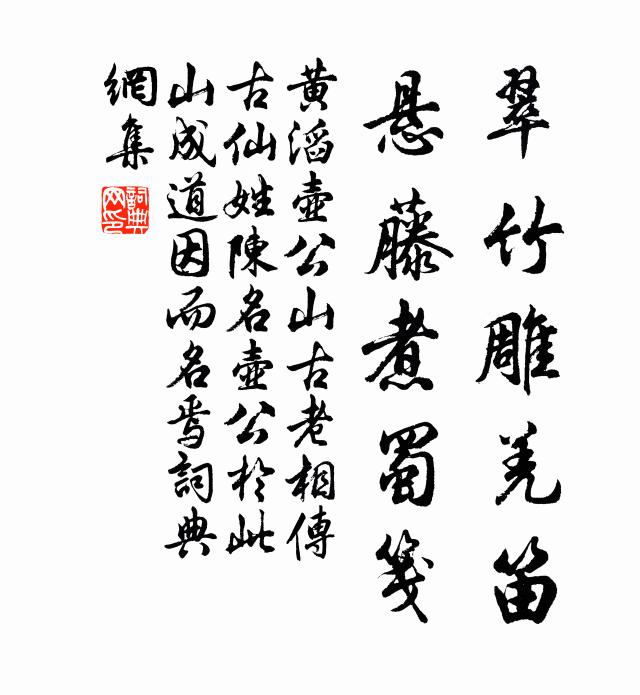 翠竹雕羌笛
悬藤煮蜀笺
黄滔壶公山古老相傳
古仙姓陳名壶公於此
山成道因而名焉詞典
網集
詞典
网印